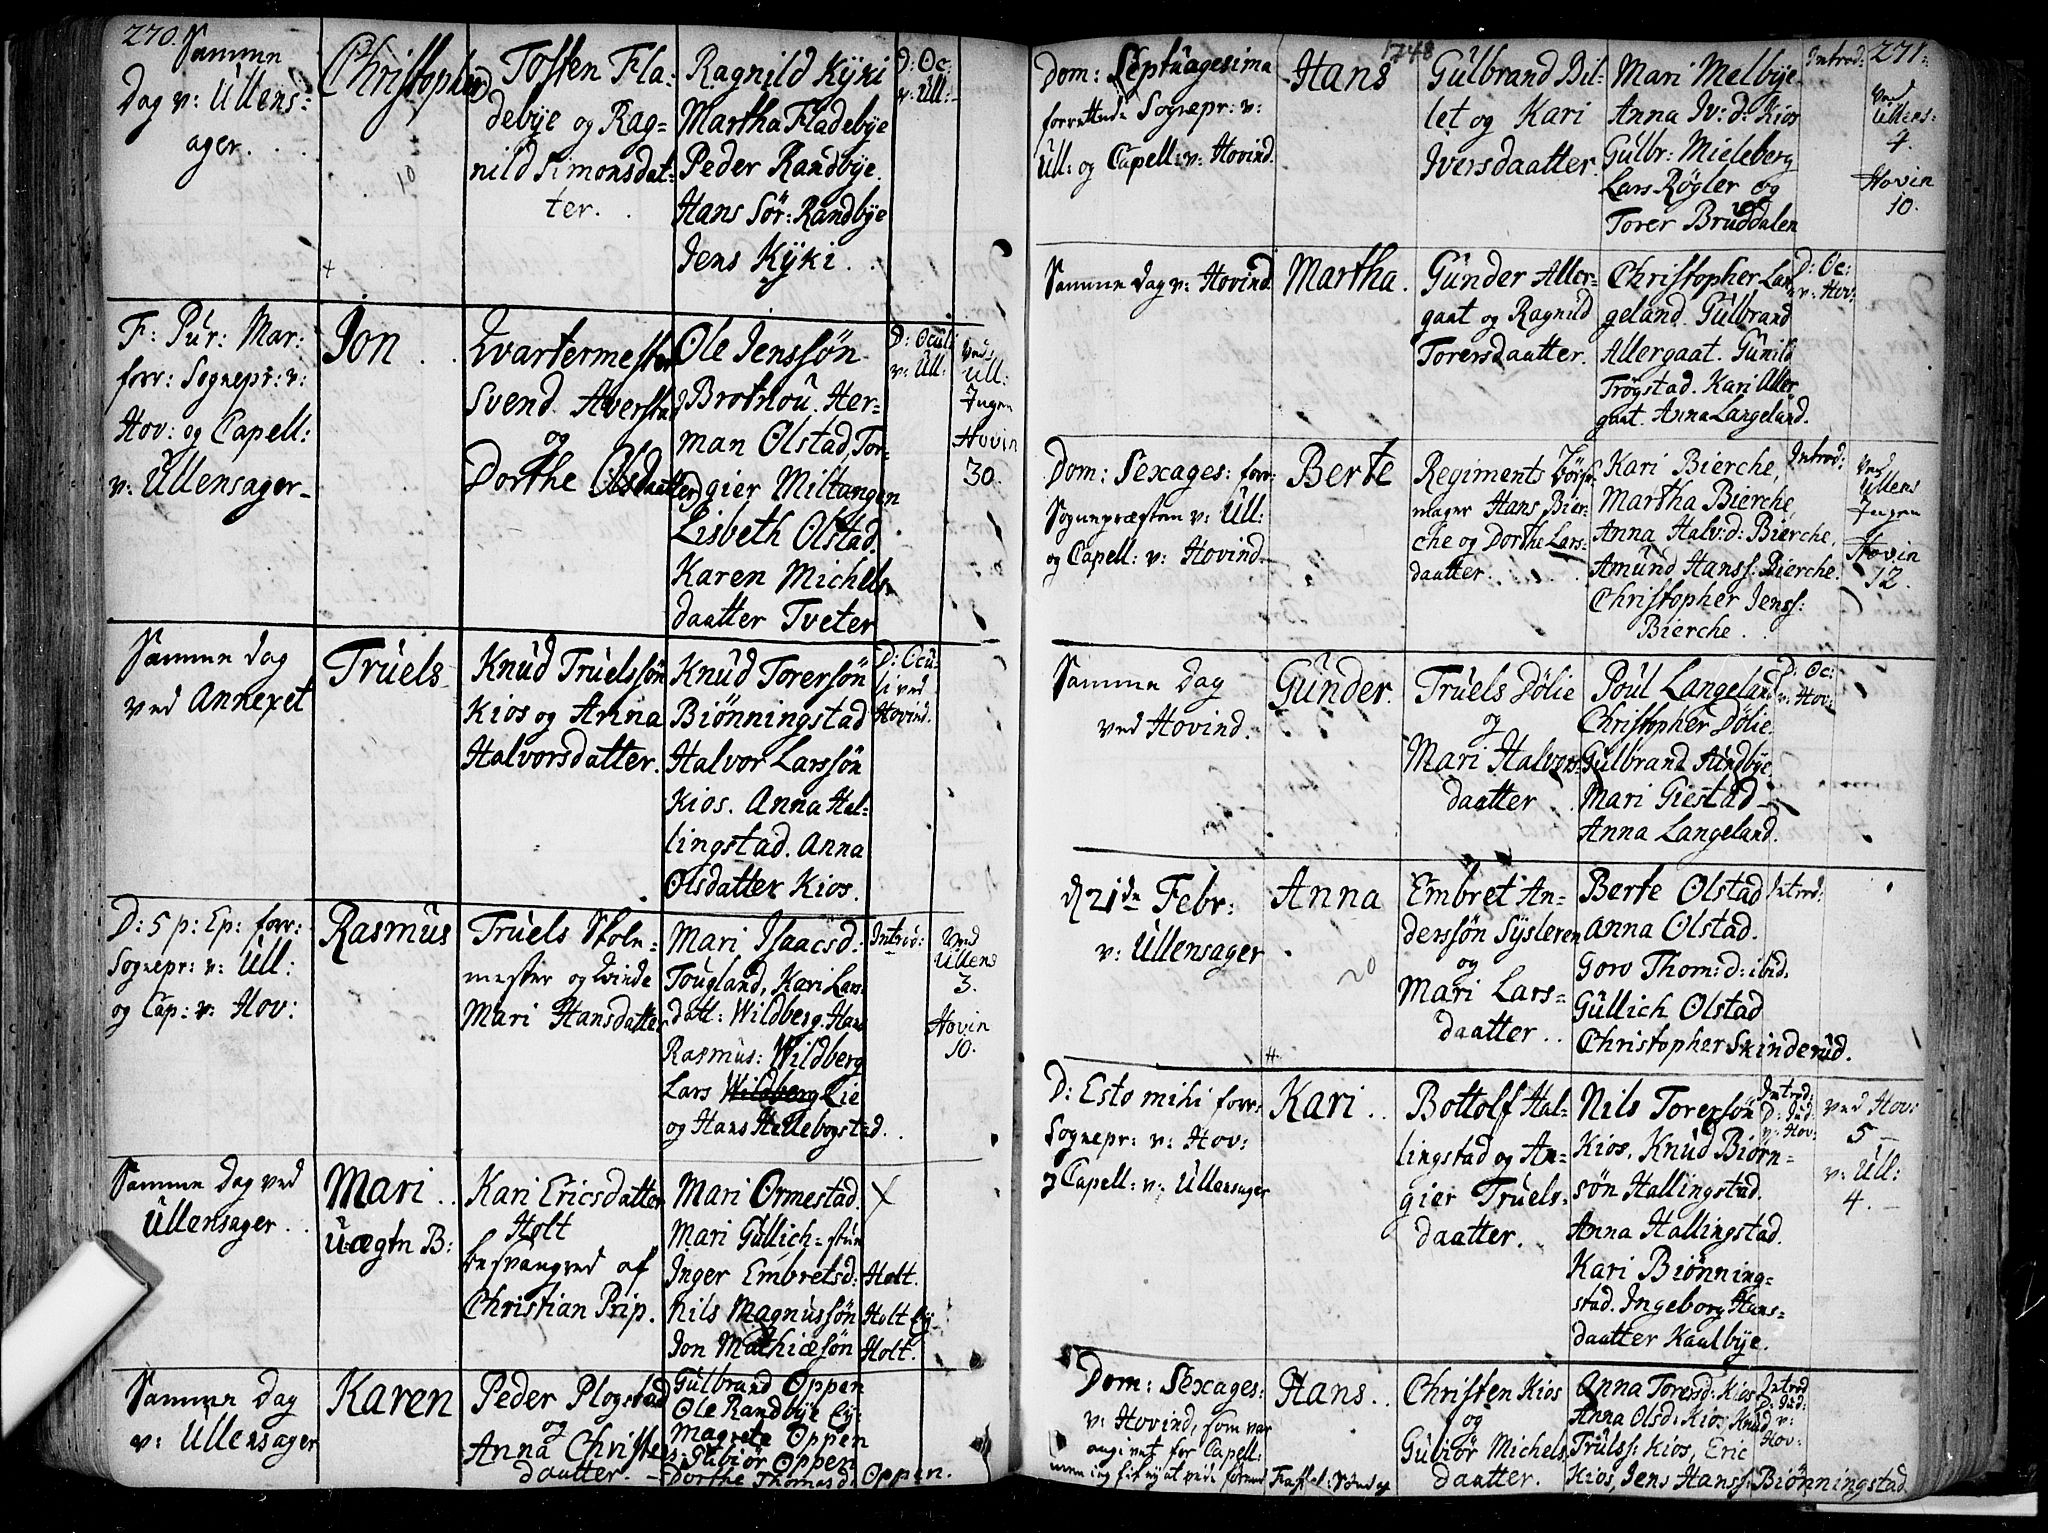 270.
Samme
Dag v: Ullens:
ager.
Christopher
10
Tosten Fla-
debye og Rag=
nild Simonsdat-
ter.
Ragnild Kÿki
Martha Fladebye
Peder Randbye.
Hans Sör: Randbye
Jens Kÿki.
D: Oc:
v: Ull:
F: Pur: Mar:
forr: Sognepr: v:
Hov: og Capell:
v: Ullensager
Jon
Qvartermester
Svend Aversta
og
Dorthe Olsdaatter
Ole Jenssön
Brotnou. Her-
man Olstad, Tor-
gier Miltangen
Lisbeth Olstad.
Karen Michels-
daatter Tveter
D: Oculi
v: Ull:
Ved
Ull:
Ingen
Hovin
30.
Samme dag
ved Annexet
Truels
Knud Truelssön
Kios og Anna
Halvorsdatter.
Knud Torersön
Biönningstad
Halvor Larssön
Kios. Anna Hal-
lingstad. Anna
Olsdatter Kios.
D: Ocu-
li ved
Hovind.
D: 5 p: Ep: forr:
Sognepr: v: Ull:
og Cap: v: Hov:
Rasmus
Truels Skole-
mester og Qvinde
Mari Hansdatter
Mari Isaacsd.
Tougland, Kari Lars-
datt: Wildberg. Hans
Rasmus: Wildberg
Lars Wildberg Lie
og Hans Hellebogstad.
Introd:
Ved
Ullens
3.
Hovin
10.
Samme Dag ved
Ullensager.
Mari
Uægtn B:
Kari Ericsdatter
Holt
besvangred af
Christian Prip.
Mari Ormestad.
Mari Gullich-stun
Inger Embretsd: Holt.
Nils Magnussön Holt Ey
Jon Mathiæsön Holt.
Samme Dag
v: Ullensager
Karen
Peder Plogstad
og
Anna Christens-
daatter.
Gulbrand Oppen
Ole Randbye Ey:
Magrete Oppen
Gubiör Oppen
Dorthe Thomasd: Oppen.
1748
271.
Dom: Septuagesima
forrettede Sognepr: v:
Ull: og Capell: v: Hovind.
Hans
Gulbrand Bil-
let og Kari
Iversdaatter.
Mari Melbye
Anna Iv: d: Kios
Gulbr: Mieleberg
Lars Røgler og
Torer Bruddalen
Introd:
Ved
Ullens:
4.
Hovin
10.
Samme Dag v: Hovind
Martha.
Gunder Aller-
gaat og Ragnild
Torersdaatter.
Christopher Lan-
geland. Gulbrand
Allergaat. Gunild
Trögstad. Kari Aller
gaat. Anna Langeland.
D: Oc:
v: Hov:
Dom: Sexages: forr:
Sognepræsten v: Ull:
og Capell: v: Hovind.
Berte
Regiments Börse-
mager Hans Bier-
che og Dorthe Lars-
daatter.
Kari Bierche,
Martha Bierche,
Anna Halv: d: Bierche,
Amund Hanss. Bierche.
Christopher Jenss:
Bierche.
Introd:
Ved
Ullens
Ingen
Hovin
12.
Samme Dag
ved Hovind.
Gunder.
Truels Dölie
og
Mari Halvors-
daatter
Poul Langeland
Christopher Dölie.
Gulbrand Aindbye.
Mari Giestad
Anna Langeland.
D: Oc:
v: Hov:
d 21de Febr:
v: Ullensager
Anna
20
Embret An-
derssön Sysleren
og
Mari Lars-
daatter.
Berte Olstad
Anna Olstad.
Goro Thom: d: ibid.
Gullich Olstad
Christopher Skinderud.
Introd:
D: Esto mihi forr:
Sognepr: v: Hov:
og Capell: v: Ullensager
Kari
Bottolf Hal-
lingstad og An-
gier Truels-
daatter.
Nils Torersön
Kios. Knud Biörn-
sön Hallingstad.
Anna Hallingstad.
Kari Biönning-
stad. Ingeborg Hans-
daatter Kaalbye.
Introd:
D: Jud:
v: Hov:
Ved Hov:
5
v: Ull:
4.
Dom: Sexages:
v: Hovind, som var
angivet for Capell:
Hans.
Christen Kios
og
Gubiör Michels
daatter.
Anna Torersd: Kios
Anna Olsd: Kios, Knud
Trulss: Kios, Eric
Kios, Jens Hanss: Biönningstad
Introd
D: Jud:
v:
Hov: